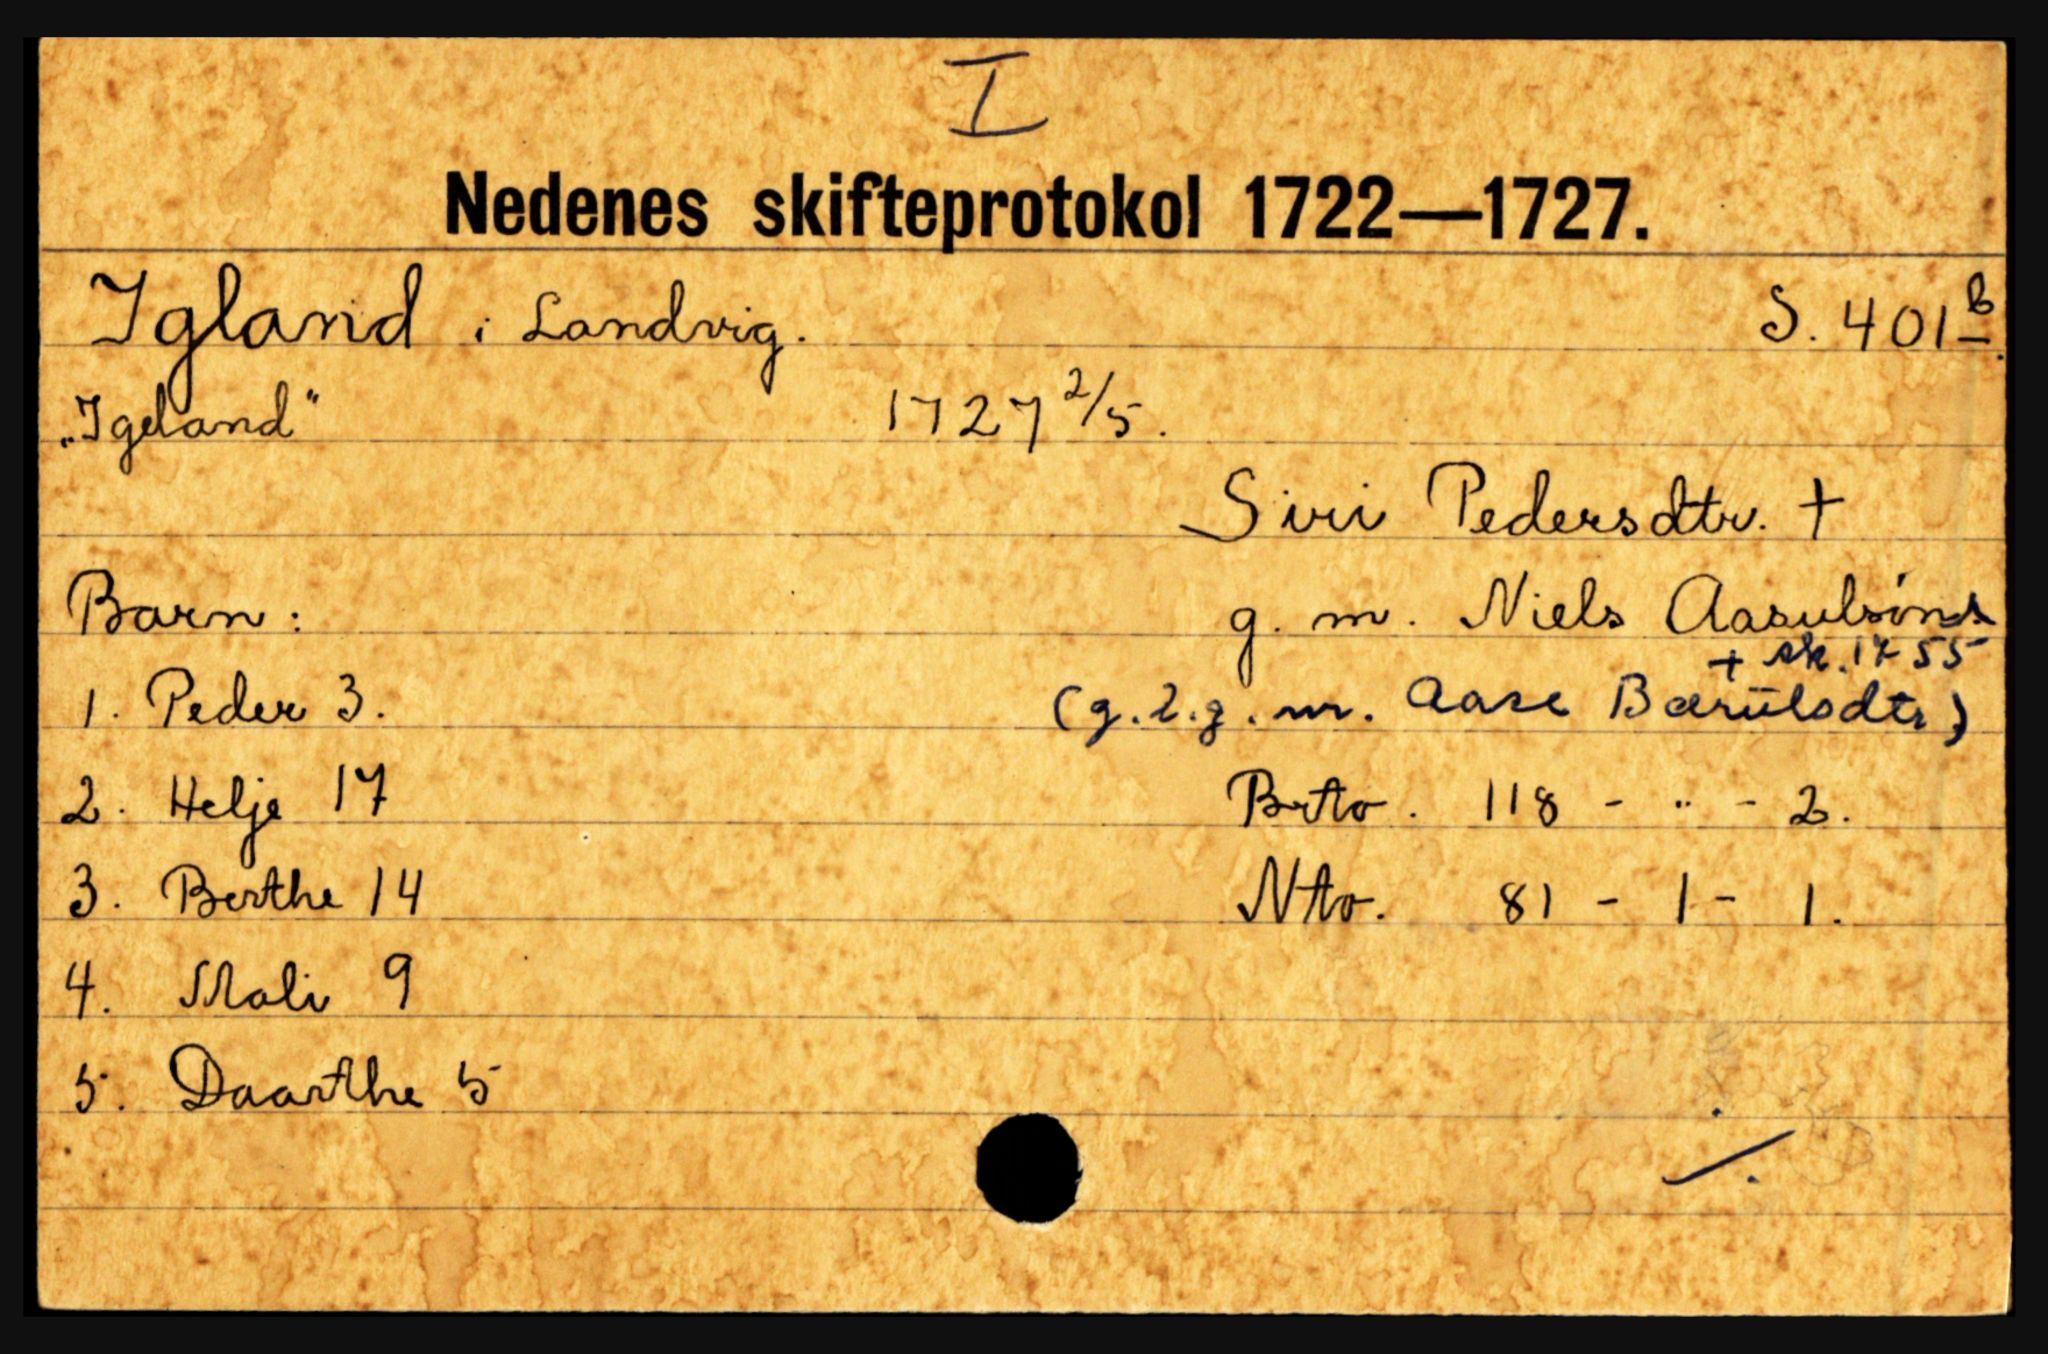 I
Nedenes skifteprotokol 1722—1727.
Igland i Landvig. S. 401 b.
„Igeland" 1727 2/5.
Siri Pedersdtr. +
Barn: g. m. Niels Aasulsøns
+ sk. 1755
1. Peder 3. (g. 2. g. m. Aase Bærulsdtr)
2. Helje 17 Brto. 118 - " - 2.
3. Berthe 14 Nto. 81 - 1 - 1.
4. Mali 9
5. Daarthe 5